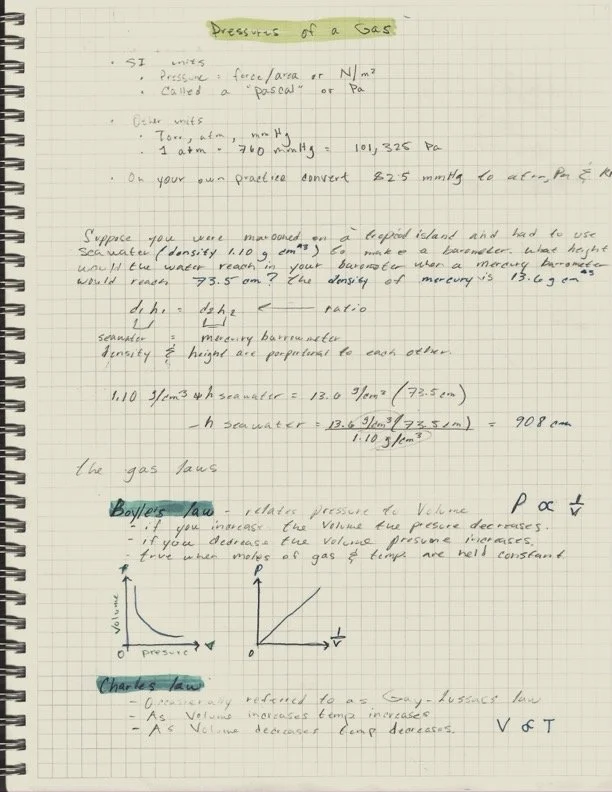 Pressures of a Gas
· SI units
· Pressure = force/area or N/m²
· Called a "pascal" or Pa
· Other units
· Torr, atm, mmHg
· 1 atm = 760 mmHg = 101,325 Pa
· On your own practice convert 82.5 mmHg to atm, Pa &
Suppose you were marooned on a tropical island and had to use
seawater (density 1.10 g cm⁻³) to make a barometer. What height
would the water reach in your barometer when a mercury barometer
would reach 73.5 cm? The density of mercury is 13.6 g cm⁻³
d₁h₁ = d₂h₂ ← ratio
seawater = mercury barrowmeter
density & height are porportional to each other.
1.10 g/cm³ * h seawater = 13.6 g/cm³ (73.5cm)
h seawater = 13.6 g/cm³(73.5cm) = 908 cm
1.10 g/cm³
The gas laws
Boyle's law - relates pressure to Volume P ∝ 1/V
- if you increase the volume the presure decreases.
- if you decrease the volume pressure increases.
- true when moles of gas & temp are held constant.
P P
Volume
0 pressure V 0 1/V
Charles law
- Occasionally referred to as Gay-Lussacs law
- As Volume increases temp increases
- As Volume decreases temp decreases. V ∝ T